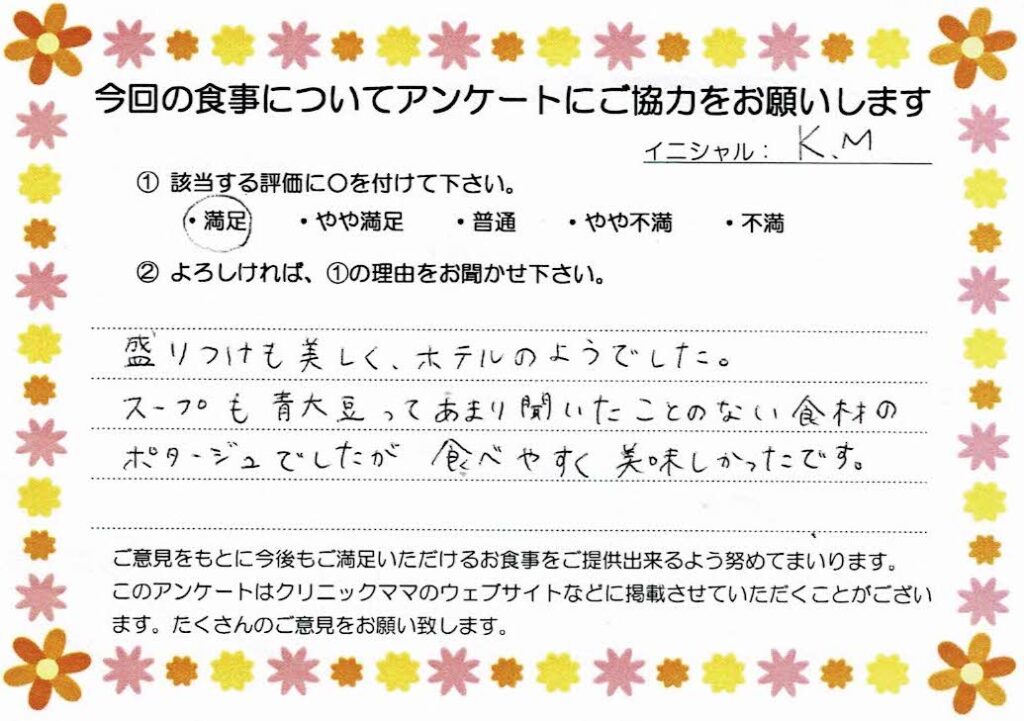 今回の食事についてアンケートにご協力をお願いします
イニシャル： K.M
① 該当する評価に〇を付けて下さい。
・満足 ・やや満足 ・普通 ・やや不満 ・不満
② よろしければ、①の理由をお聞かせ下さい。
盛りつけも美しく、ホテルのようでした。
スープも青大豆ってあまり聞いたことのない食材の
ポタージュでしたが 食べやすく美味しかったです。
ご意見をもとに今後もご満足いただけるお食事をご提供出来るよう努めてまいります。
このアンケートはクリニックママのウェブサイトなどに掲載させていただくことがござい
ます。たくさんのご意見をお願い致します。